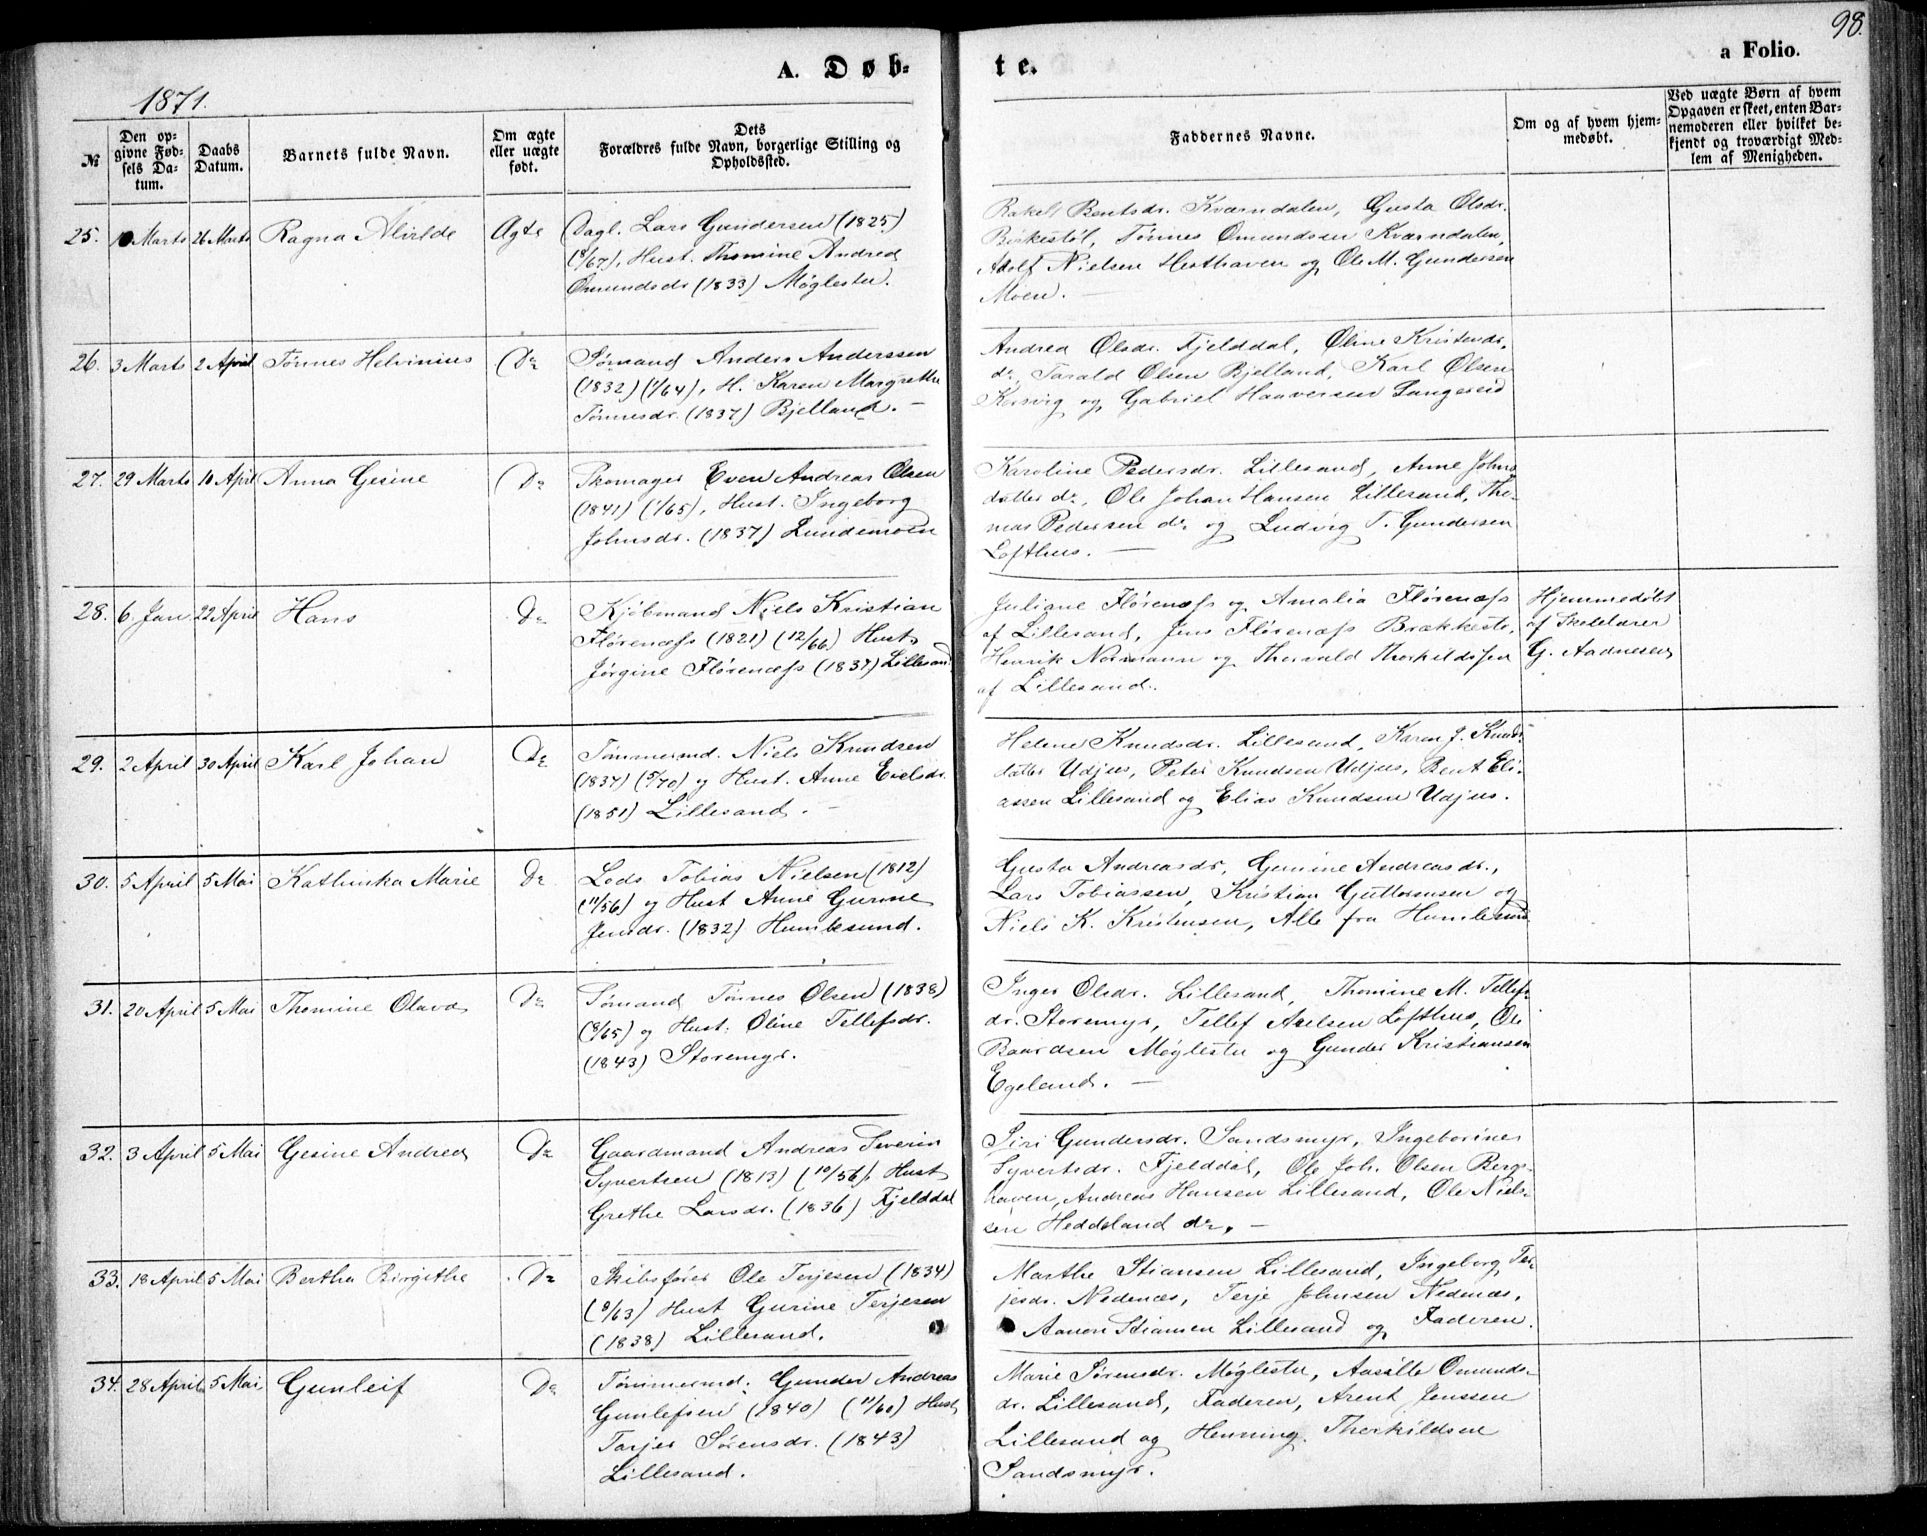 98.
A. Døb-
te.
a Folio.
1871.
№
Den op-
givne Fød-
sels Da-
tum.
Daabs
Datum.
Barnets fulde Navn.
Om ægte
eller uægte
født.
Dets
Forældres fulde Navn, borgerlige Stilling og
Opholdssted.
Faddernes Navne.
Om og af hvem hjem-
medøbt.
Ved uægte Børn af hvem
Opgaven er skeet, enten Bar-
nemoderen eller hvilket be-
kjendt og troværdigt Med-
lem af Menigheden.
25. Marts 26 Marts Ragna Alvilde Ægte Dagl. Lars Gundersen (1825)
(8/67), Hust. Thomine Andrea
Omundsdr (1833) Møglestu.
Rakel Bentsdr. Kværndalen, Gusta Olsdr.
Birkestøl, Tønnes Omundsen Kværndalen,
Adolf Nielsen Hesthaven og Ole M. Gundersen
Moen. —
26. 3 Marts 2 April Tønnes Helvinius Do Sømand Anders Anderssen
(1832) (1/64), H. Karen Margrethe
Tønnesdr. (1837) Bjelland. —
Andrea Olsdr. Fjelddal, Oline Kristensdr.
do, Tarald Olsen Bjelland, Karl Olsen
Korsvig og Gabriel Haaversen Langereid
27. 29 Marts 10 April Anna Gesine Do Skomager Even Andreas Olsen
(1841) (1/65), Hust. Ingeborg
Johnsdr. (1837) Lundemoen
Karoline Pedersdr. Lillesand, Anne Johns
datter do, Ole Johan Hansen Lillesand, Tho-
mas Pedersen do og Ludvig T. Gundersen
Lofthus. —
28. 6 Jan 22 April Hans Do Kjøbmand Niels Kristian
Florenæss (1821) (12/66) Hust.
Jørgine Florenæss (1837) Lillesand
Juliane Florenæss og Amalia Florenæss
af Lillesand, Jens Florenæss Brækkestø,
Henrik Normann og Thorvald Thorkildssen
af Lillesand.
Hjemmedøbt
af Skolelærer
G. Aadnesen
29. 2 April 30 April Karl Johan Do Tømmermd. Niels Knudsen
(1837) (5/70) og Hust. Anne Evelsdr.
(1851) Lillesand. —
Helene Knudsdr. Lillesand, Karen J. Knuds-
datter Udjus, Peter Knudsen Udjus, Bent Eli-
assen Lillesand og Elias Knudsen Udjus.
30. 5 April 5 Mai Kathinka Marie Do Lods Tobias Nielsen (1812)
(11/56) og Hust Anne Gurine
Jensdr. (1832) Humlesund.
Gusta Andreasdr, Gemine Andreasdr.,
Lars Tobiassen, Kristian Guttormsen og
Niels K. Kristensen, Alle fra Humlesund
31. 20 April 5 Mai Thomine Olava Do Sømand Tønnes Olsen (1838)
(8/65) og Hust. Oline Tellefsdr.
(1843) Storemyr.
Inger Olsdr. Lillesand, Thomine M. Tellefs-
dr. Storemyr, Tellef Axelsen Lofthus, Ole
Baardsen Møglestu og Gunder Kristiansen
Egeland. —
32. 3 April 5 Mai Gesine Andrea Do Gaardmand Andreas Severin
Syvertsen (1813) (10/56), Hust
Grethe Larsdr. (1836) Fjelddal
Siri Gundersdr. Sandsmyr, Ingeborine
Syvertsdr. Fjelddal, Ole Joh. Olsen Bergs-
haven, Andreas Hansen Lillesand, Ole Niel-
sen Heddeland do. —
33. 18 April 5 Mai Bertha Birgithe Do Skibsfører Ole Terjesen (1834)
(9/63) Hust Gurine Terjesen
(1838) Lillesand.
Marthe Stiansen Lillesand, Ingeborg Ter-
jesdr. Nedenæs, Terje Johnsen Nedenæs,
Aanon Stiansen Lillesand og Faderen.
34. 28 April 5 Mai Gunleif Do Tømmermd. Gunder Andreas
Gunlefsen (1840) (11/60) Hust
Tarjer Sørensdr. (1843)
Lillesand.
Marie Sørensdr. Møglestu, Aasille Omunds-
dr. Lillesand, Faderen, Arent Jenssen
Lillesand og Henning Thorkildsen
Sandsmyr.